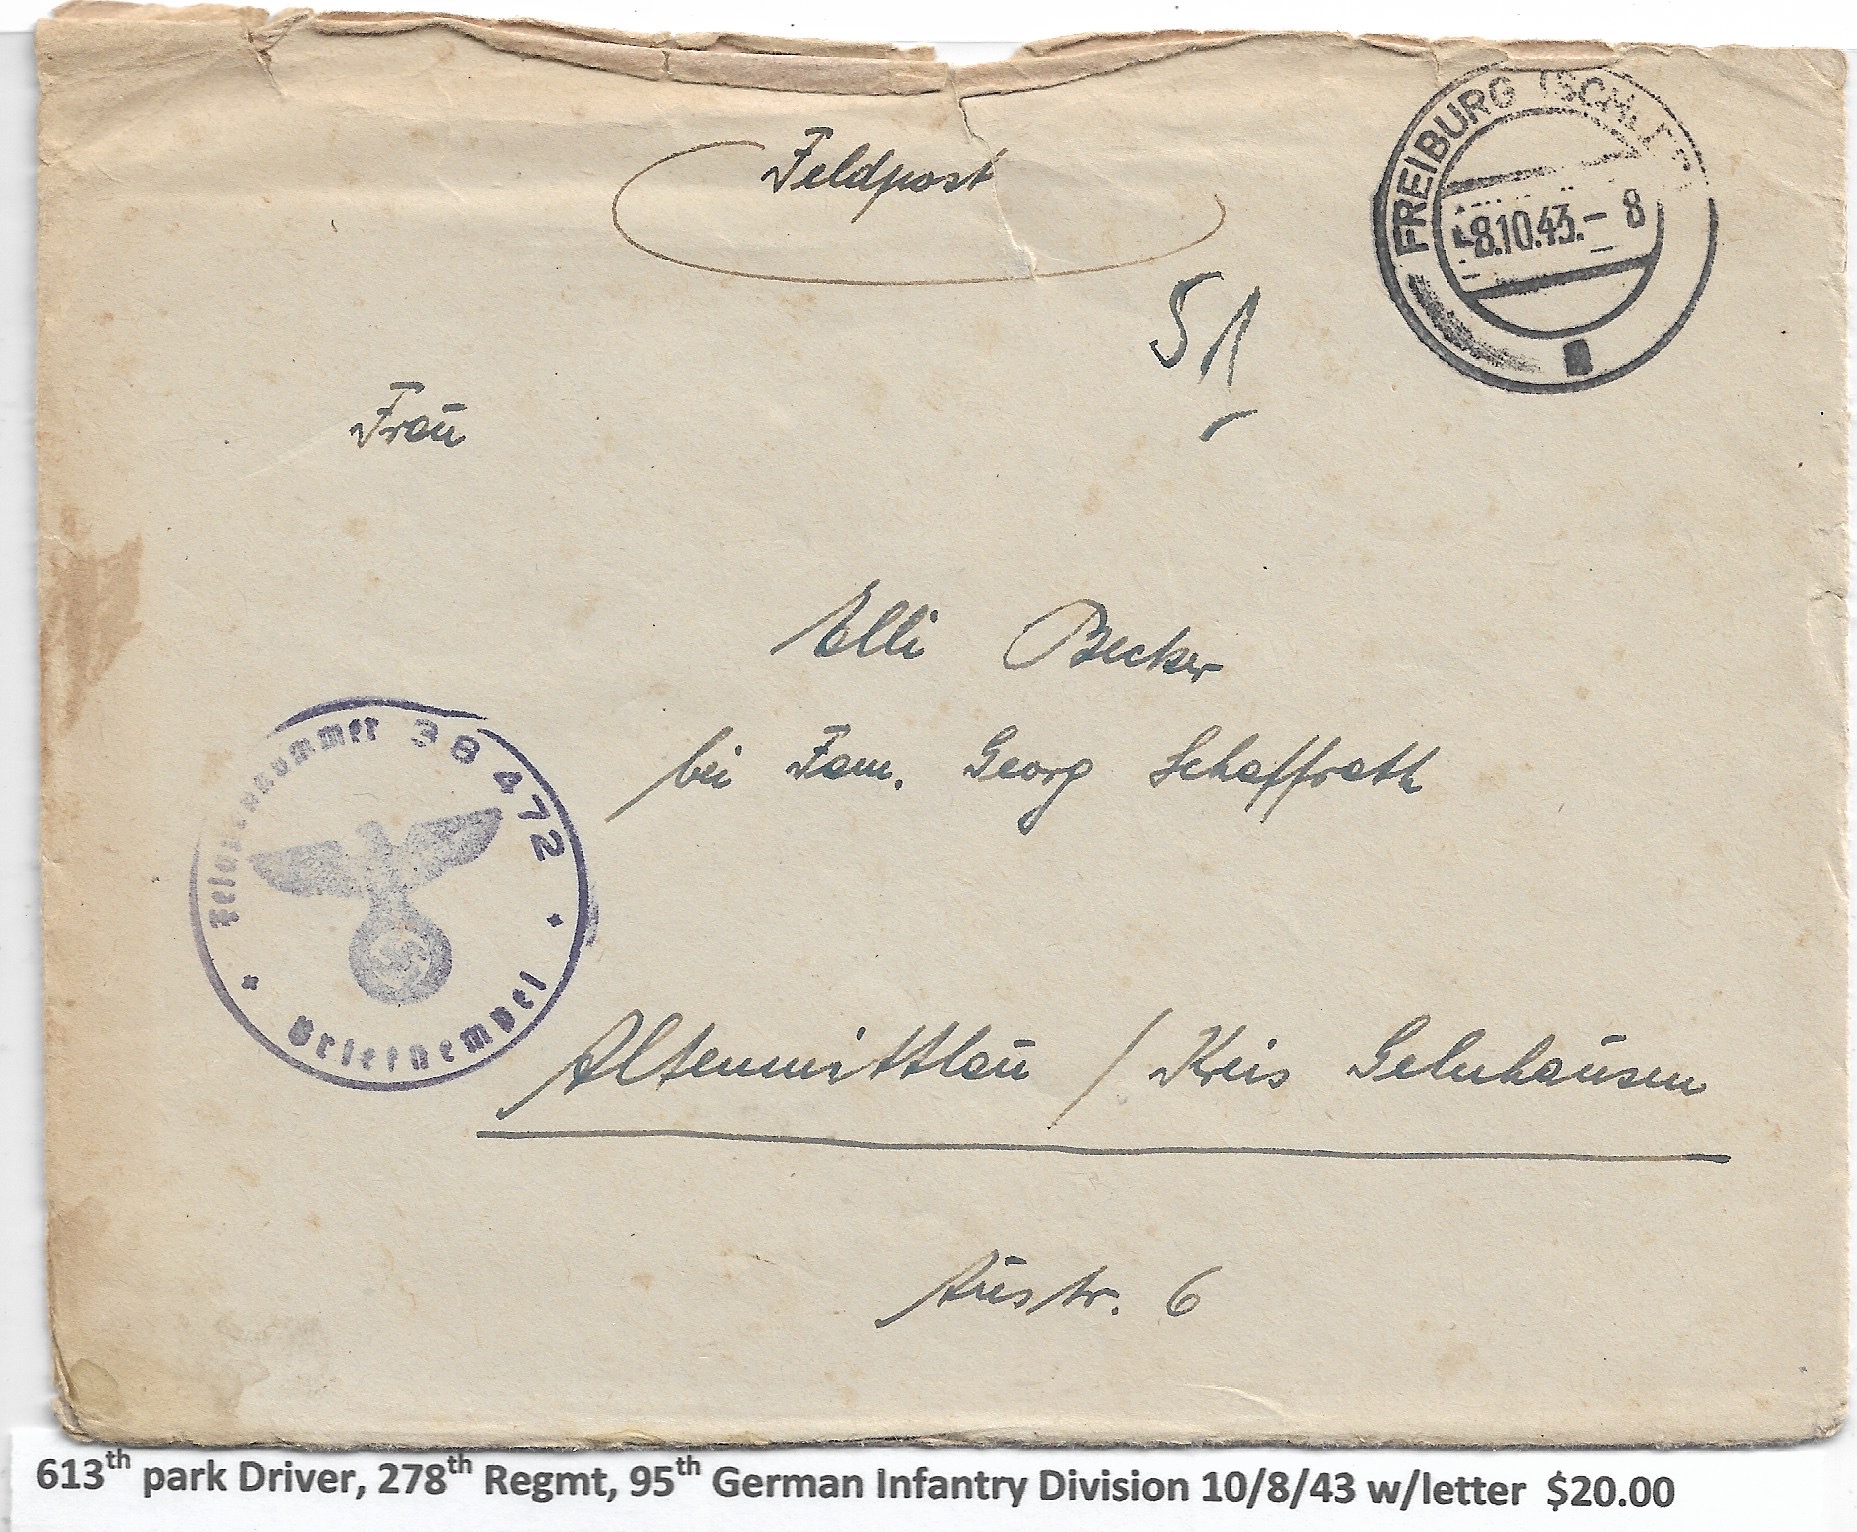 Feldpost
FREIBURG (SCHLES
-8.10.43.- 8
51
Frau
Elli Becker
bei Fam. Georg Schaffrath
Feldpostnummer 38 472
Briefstempel
Altenmittlau / Kreis Gelnhausen
Austr. 6
613th park Driver, 278th Regmt, 95th German Infantry Division 10/8/43 w/letter $20.00